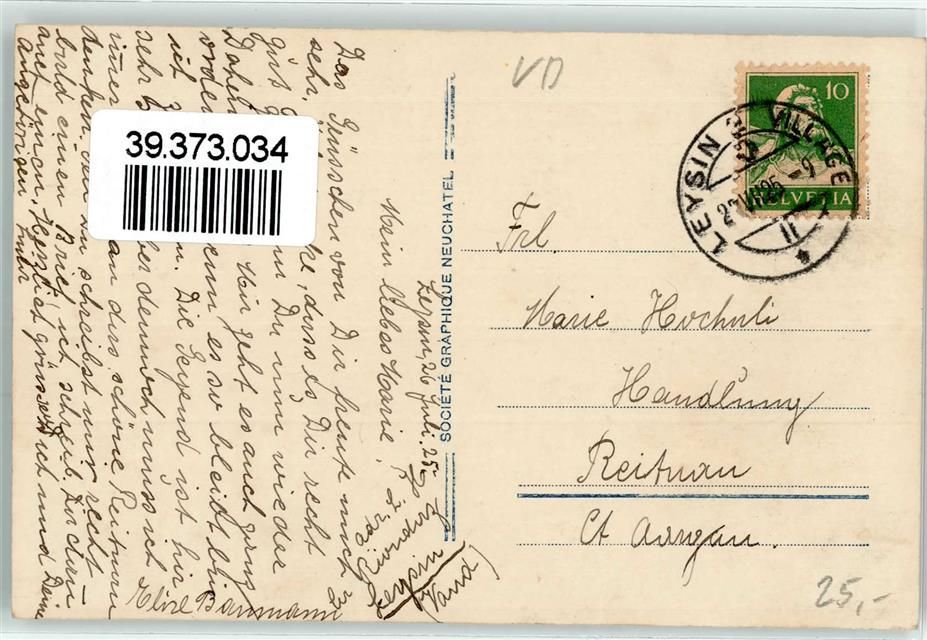 Leysin, 26 Juli. 25.
Mein liebes Marie,
Das Grüsschen von Dir freute mich
sehr, dass es Dir recht
gut Du nun wieder
Daheim Mir geht es auch ganz
orden wenn es so bleibt bin
ich Die Gegend ist hier
sehr aber dennoch muss ich
immer an das schöne Reitnau
denken. Du schreibst mir recht
bald einen Brief, ich schreib Dir dann
auch einen. Herzlich grüsset Dich und Deine
Angehörigen
Elise Baumann
Leysin
Vaud)
SOCIÉTÉ GRAPHIQUE NEUCHATEL
39.373.034
VD
10
HELVETIA
LEYSIN VILLAGE
Frl
Marie Hochuli
Handlung
Reitnau
Ct Aargau.
25,-